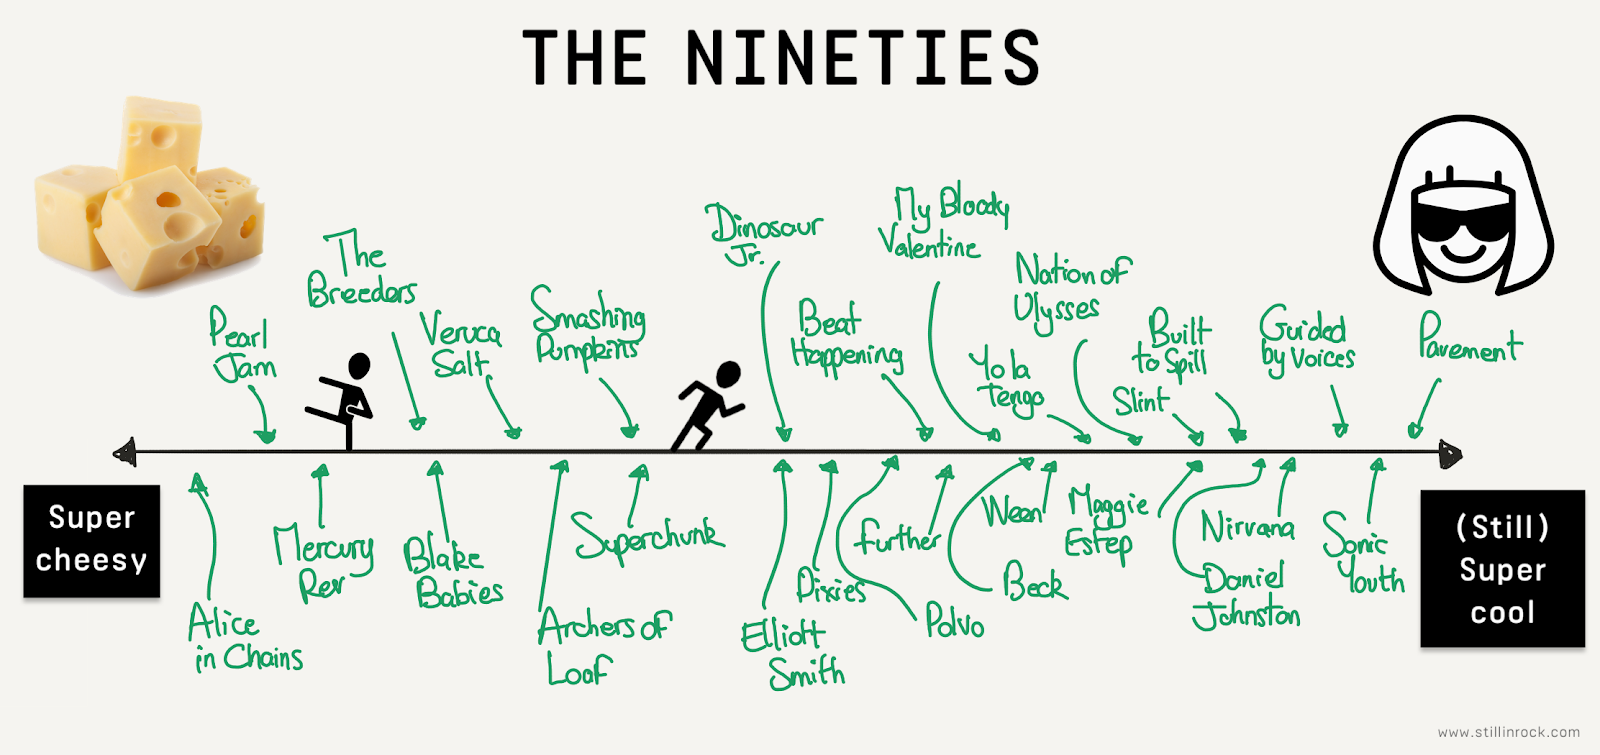 THE NINETIES
My Bloody
Valentine
Dinosaur
Jr.
The
Breeders
Nation of
Ulysses
Pearl
Jam
Veruca
Salt
Smashing
Pumpkins
Beat
Happening
Yo la
Tengo
Slint
Built
to Spill
Guided
by Voices
Pavement
Super
cheesy
(Still)
Super
cool
Alice
in Chains
Mercury
Rev
Blake
Babies
Archers of
Loaf
Superchunk
Elliott
Smith
Pixies
further
Polvo
Ween
Beck
Maggie
Estep
Nirvana
Daniel
Johnston
Sonic
Youth
www.stillinrock.com